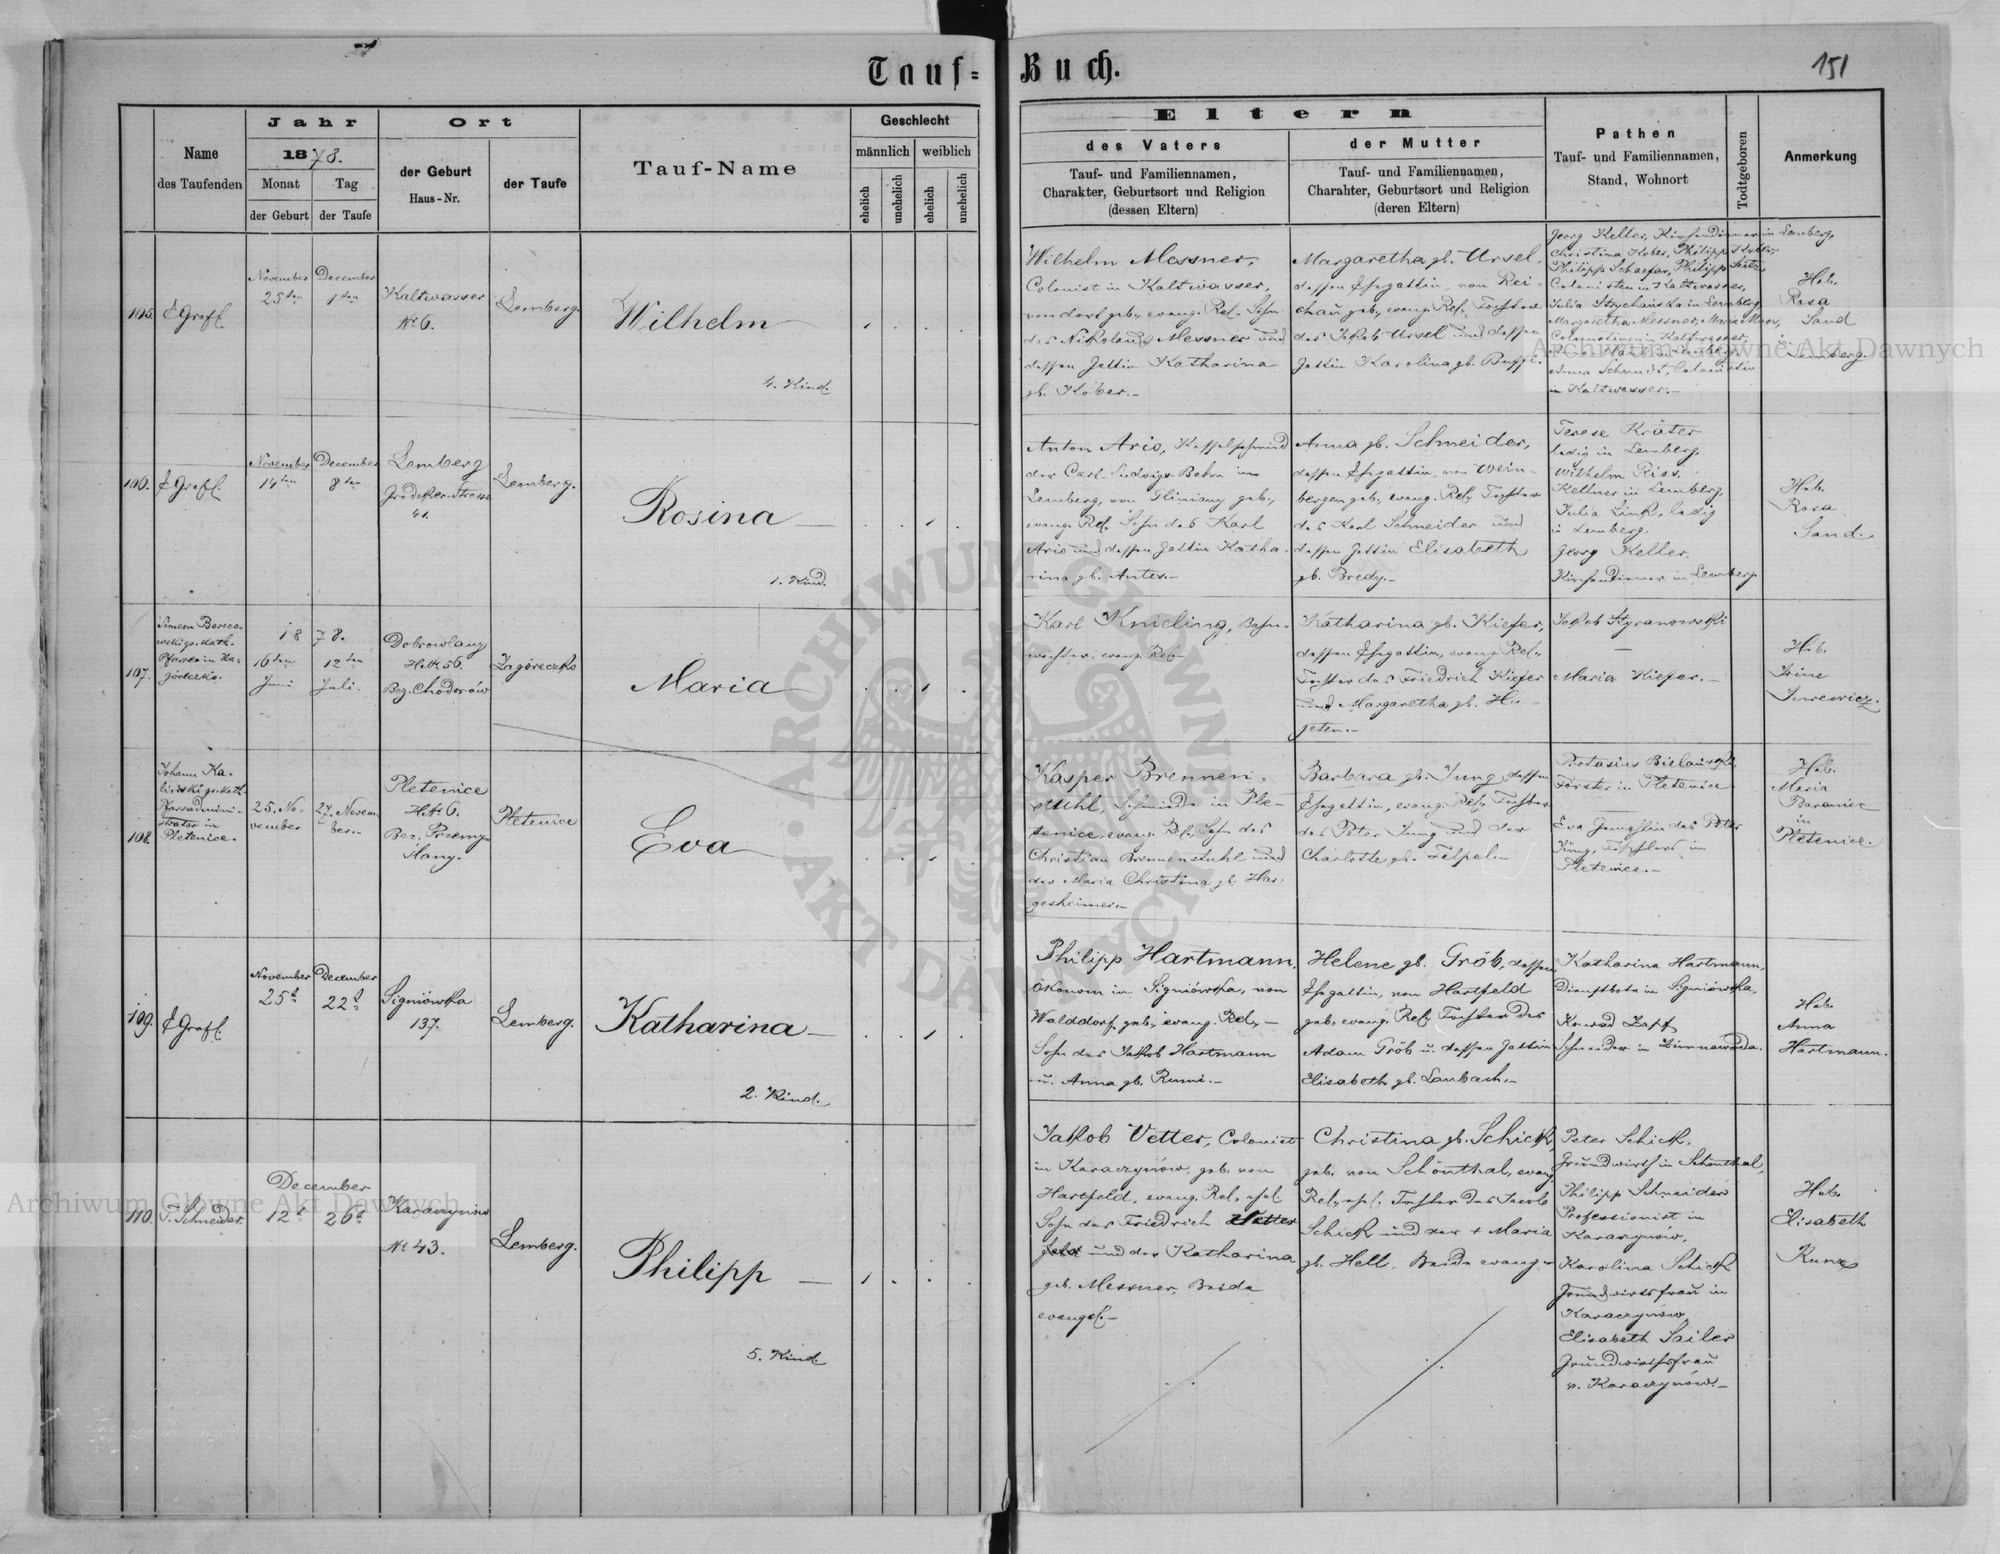 Tauf-Buch.
151
Name
des Taufenden
Jahr
1878.
Monat
Tag
der Geburt
der Taufe
Ort
der Geburt
Haus-Nr.
der Taufe
Tauf-Name
Geschlecht
männlich
weiblich
ehelich
unehelich
ehelich
unehelich
Eltern
des Vaters
Tauf- und Familiennamen,
Charakter, Geburtsort und Religion
(dessen Eltern)
der Mutter
Tauf- und Familiennamen,
Charahter, Geburtsort und Religion
(deren Eltern)
Pathen
Tauf- und Familiennamen,
Stand, Wohnort
Todtgeboren
Anmerkung
105.
November
25ten
December
1ten
Kaltwasser
№ 6.
Lemberg.
Wilhelm
4. Kind.
Wilhelm Messner,
Colonist in Kaltwasser,
von dort geb., evang. Rel. Sohn
des Nikolaus Messner und
dessen Gattin Katharina
gb. Kober.-
Margaretha gb. Ursel,
dessen Ehegattin, von Rei-
chau geb., evang. Rel., Tochter
des Jakob Ursel und dessen
Gattin Karolina gb.
Georg Keller, Kirchendiener in Lemberg,
Philipp Schaefer, Philipp Seitz
Colonisten in Kaltwasser,
Julia in Lemberg
Margaretha Messner,
Anna Schmidt, Colonistin
in Kaltwasser.-
Heb.
Rosa
Sand
Lemberg.
106.
November
14ten
December
8ten
Lemberg
Grodeker-Strasse
41.
Lemberg.
Rosina
1. Kind.
Anton Ario, Kesselschmied
der Carl-Ludwigs-Bahn in
Lemberg, von geb.,
evang. Rel. Sohn des Karl
Ario und dessen Gattin Katha-
rina gb. Anter.-
Anna gb. Schneider,
dessen Ehegattin, von Wein-
bergen geb., evang. Rel., Tochter
des Karl Schneider und
dessen Gattin Elisabeth
gb. Bredy.-
Terese Kräter
ledig in Lemberg.
Wilhelm Riss.
Kellner in Lemberg,
Julia Link, ledig
in Lemberg.
Georg Keller.
Kirchendiener in Lemberg.
Heb.
Rosa
Sand.
107.
Pfarrer in Za-
góreczko.
1878.
16ten
Juni
12ten
Juli.
Dobrowlany
H№ 56
Bez. Chodorów
Zagóreczko
Maria
Karl Knieling, Bahn-
wächter, evang. Rel.-
Katharina gb. Kiefer,
dessen Ehegattin, evang. Rel.,
Tochter des Friedrich Kiefer
und Margaretha gb. Hu-
geten.-
Jakob Styranowski
Maria Kiefer.-
Heb.
Irine
Jurewicz.
108.
Johann Ka-
Pfarradmini-
strator in
Pletenice.
25. No-
vember
27. Novem-
ber.-
Pletenice
H№ 6.
Bez. Przemy-
slany.
Pletenice
Eva
Kasper Brennen-
stuhl, Schmied in Ple-
tenice, evang. Rel., Sohn des
Christian Brennenstuhl und
der Maria Christina gb. Har-
gesheimer.-
Barbara gb. Jung, dessen
Ehegattin, evang. Rel., Tochter
des Peter Jung und der
Charlotte gb. Felpel.-
Protasius
Förster in Pletenice
Eva Jung, des Peter
Jung, in
Pletenice.-
Heb.
Maria
Baraniec
in
Pletenice.
109.
November
25t
December
22t
Signiówka
137.
Lemberg.
Katharina
2. Kind.
Philipp Hartmann,
Ökonom in Signiówka, von
Walddorf geb., evang. Rel.,
Sohn des Jakob Hartmann
u. Anna gb. Rumi.-
Helene gb. Gröb, dessen
Ehegattin, von Hartfeld
geb., evang. Rel., Tochter des
Adam Gröb u. dessen Gattin
Elisabeth gb. Laubach.-
Katharina Hartmann,
Dienstbote in Signiówka,
Konrad Zapf
Schneider in Zimnawoda.
Heb.
Anna
Hartmann.
110.
T. Schneider.
December
12t
26t
Karaczynów
№ 43.
Lemberg.
Philipp
5. Kind.
Jakob Vetter, Colonist
in Karaczynów, geb. von
Hartfeld, evang. Rel., ehel.
Sohn des Friedrich Vetter
und der Katharina
geb. Messner, Beide
evangel.-
Christina gb. Schick,
geb. von Schönthal, evang.
Rel., ehel. Tochter des Jacob
Schick und der + Maria
gb. Hell, Beide evang-
Peter Schick.
Grundwirth in Schönthal,
Philipp Schneider
Professionist in
Karaczynów,
Karolina Schick
Grundwirtsfrau in
Karaczynów
Elisabeth Sailer
Grundwirthsfrau
v. Karaczynów.-
Heb.
Elisabeth
Kunz
Archiwum Główne Akt Dawnych
Archiwum Główne Akt Dawnych
ARCHIWUM GŁÓWNE AKT DAWNYCH